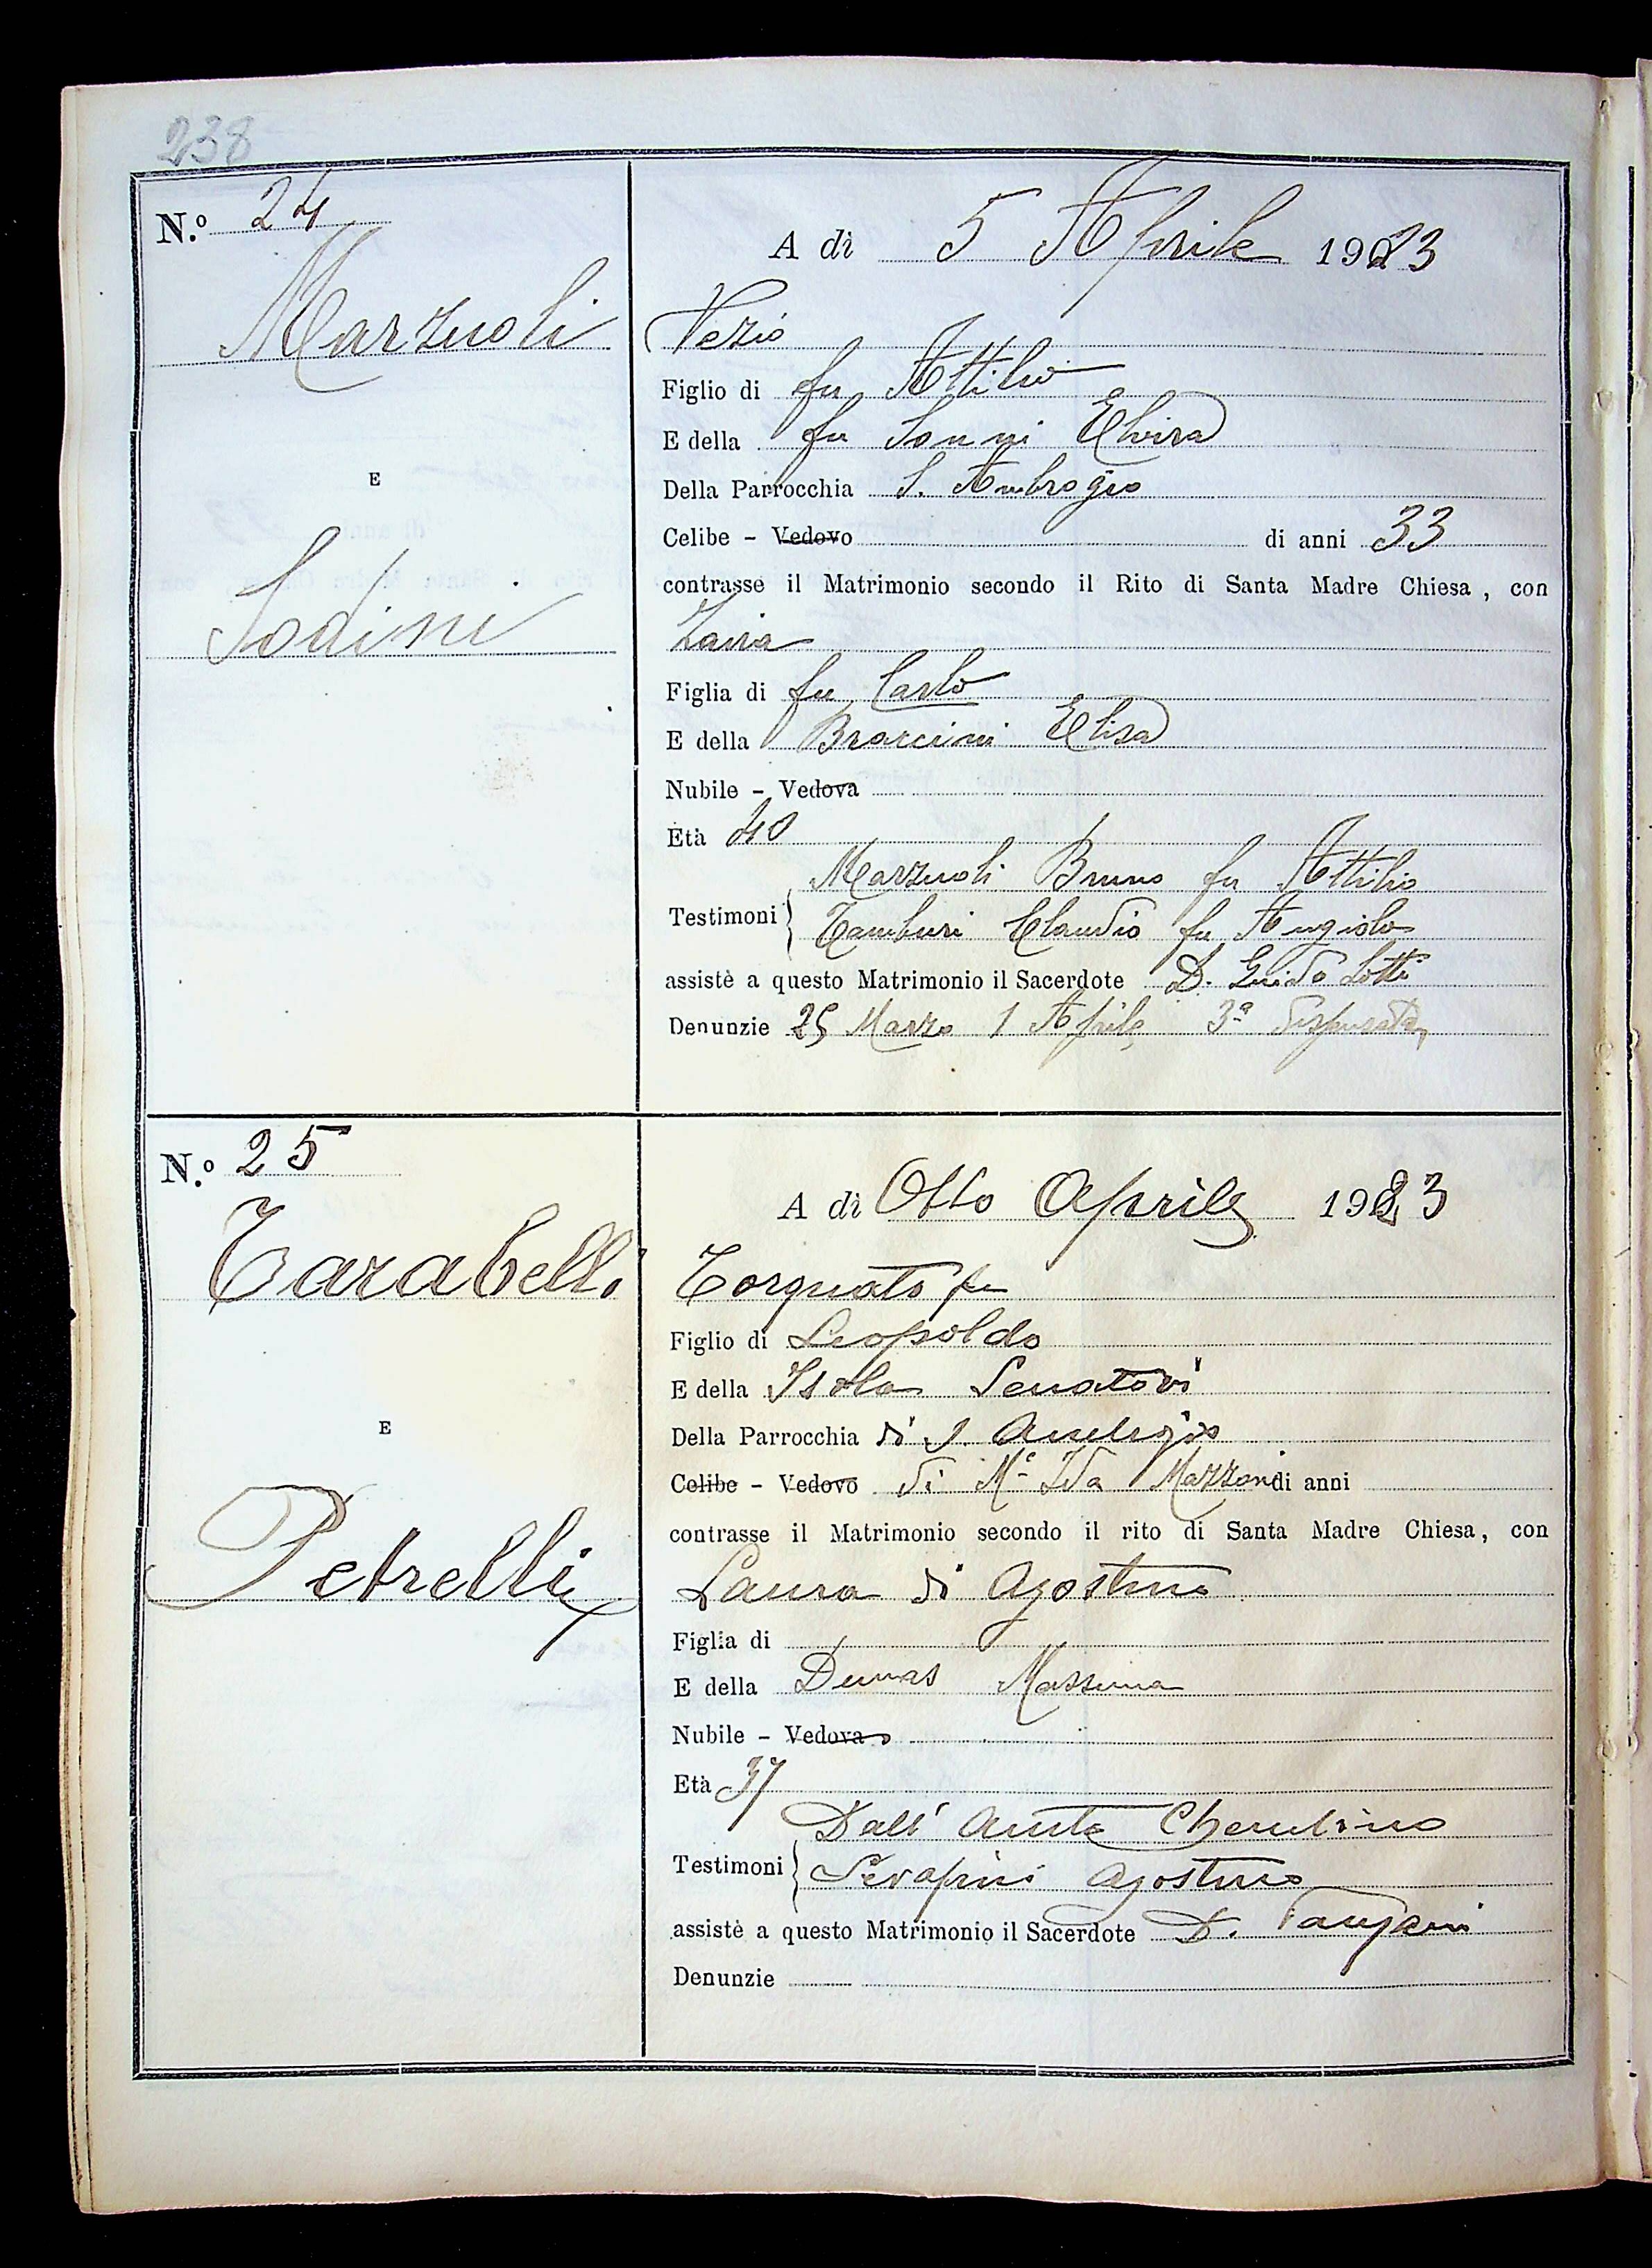 238
N.º 24
A dì 5 Aprile 1923
Marzuoli
Vezio
Figlio di fu Attilio
E della fu Sonni Elvira
Della Parrocchia S. Ambrogio
E
Celibe - Vedovo di anni 33
contrasse il Matrimonio secondo il Rito di Santa Madre Chiesa, con
Sodini
Zaira
Figlia di fu Carlo
E della Braccini Elisa
Nubile - Vedova
Età 40
Marzuoli Bruno fu Attilio
Testimoni Tamburi Claudio fu Angiolo
assistè a questo Matrimonio il Sacerdote D. Guido Lotti
Denunzie 25 Marzo 1 Aprile 3ª dispensata
N.º 25
A dì Otto Aprile 1923
Tarabelli
Torquato fu
Figlio di Leopoldo
E della Isola Senatori
Della Parrocchia di S. Ambrogio
E
Celibe - Vedovo di Mª Ida Mazzoni di anni
contrasse il Matrimonio secondo il rito di Santa Madre Chiesa, con
Petrelli
Laura di Agostino
Figlia di
E della Dumas Massima
Nubile - Vedova
Età 37
Dall' Cherubino
Testimoni Serafini Agostino
assistè a questo Matrimonio il Sacerdote D.
Denunzie